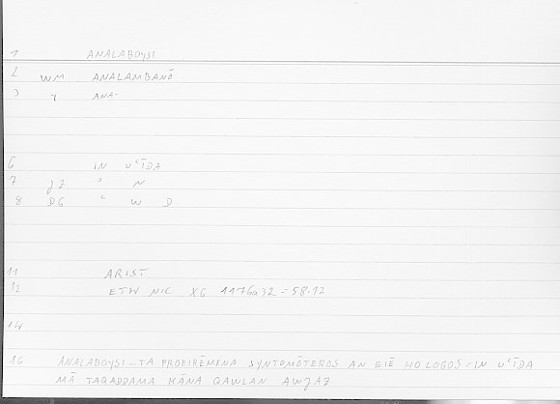 1 ANALABOYSI
2 WM ANALAMBANŌ
3 Y ANA-
6 IN UʿĪDA
7 J2 ʾ N
8 DG ʿ W D
11 ARIST
12 ETH NIC X6 1176a32 = 58.12
14
16 ANALABOYSI - TA PROEIRĒMENA SYNTOMŌTEROS AN EIĒ HO LOGOS - IN UʿĪDA
MĀ TAQADDAMA KĀNA QAWLAN AWJAZ